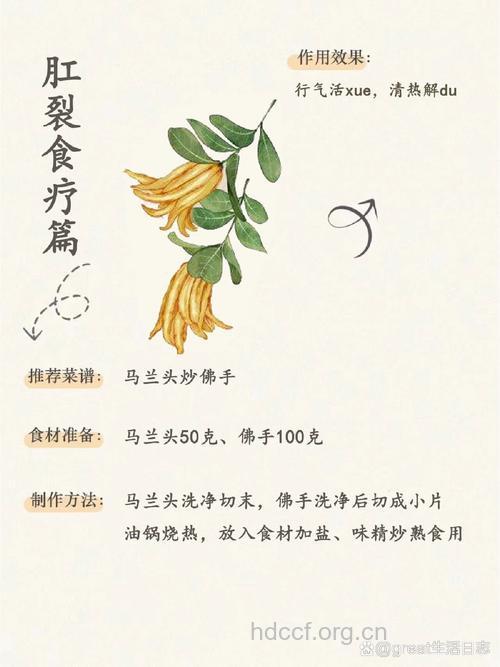 肛裂食疗篇
作用效果：
行气活xue，清热解du
推荐菜谱： 马兰头炒佛手
食材准备： 马兰头50克、佛手100克
制作方法： 马兰头洗净切末，佛手洗净后切成小片
油锅烧热，放入食材加盐、味精炒熟食用
hdccf.org.cn
@great生活日志